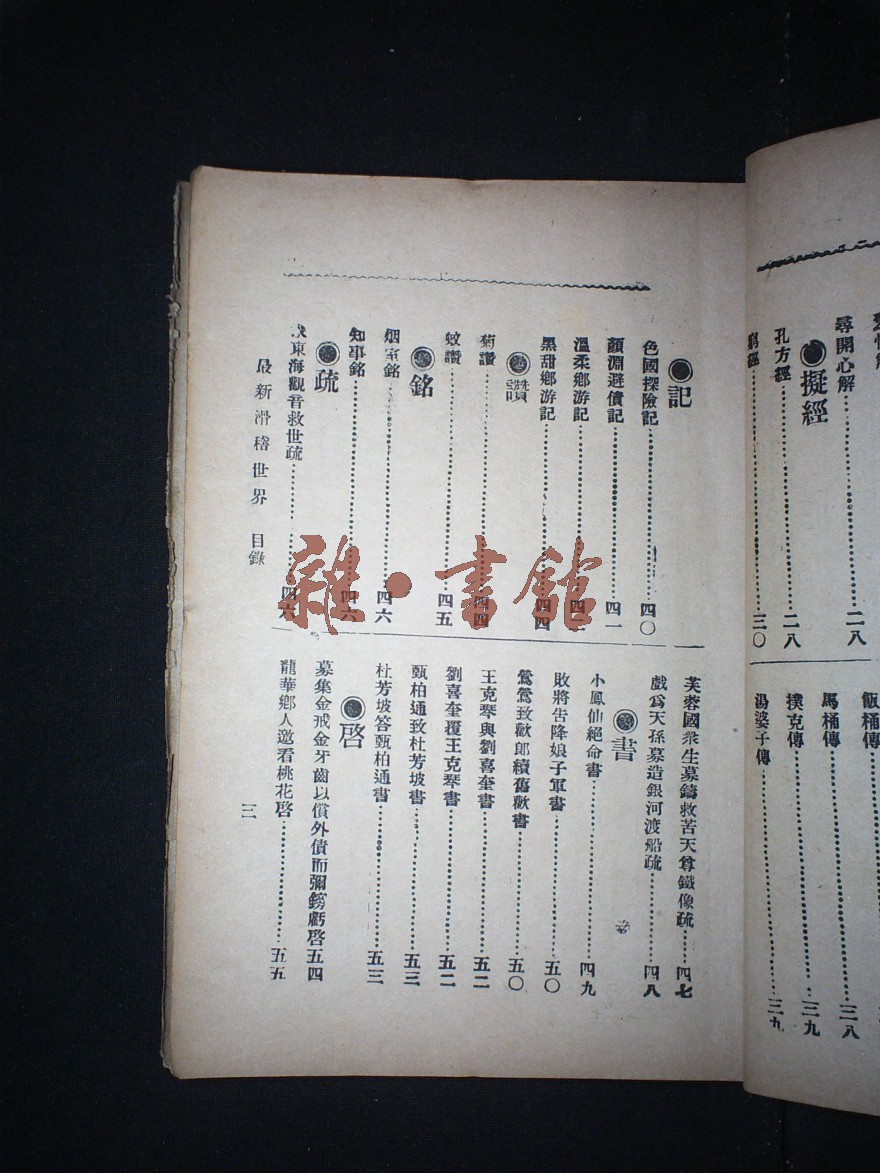 尋開心解……二八
●擬經
孔方經……二八
窮經……三〇
飯桶傳
馬桶傳……三八
撲克傳……三九
湯婆子傳……三九
●記
色國探險記……四〇
顏淵避債記……四一
溫柔鄉游記
黑甜鄉游記……四四
●讚
菊讚……四四
蚊讚……四五
●銘
烟室銘……四六
知事銘……四六
●疏
求東海觀音救世疏……四六
芙蓉國衆生募鑄救苦天尊鐵像疏……四七
戲爲天孫募造銀河渡船疏……四八
●書
小鳳仙絕命書……四九
敗將告降娘子軍書……五〇
鶯鶯致歡郎續舊歡書……五〇
王克琴與劉喜奎書……五二
劉喜奎覆王克琴書……五二
甄柏通致杜芳坡書……五三
杜芳坡答甄柏通書……五三
●啓
募集金戒金牙齒以償外債而彌鎊虧啓五四
龍華鄉人邀看桃花啓……五五
最新滑稽世界 目錄
三
雜·書館